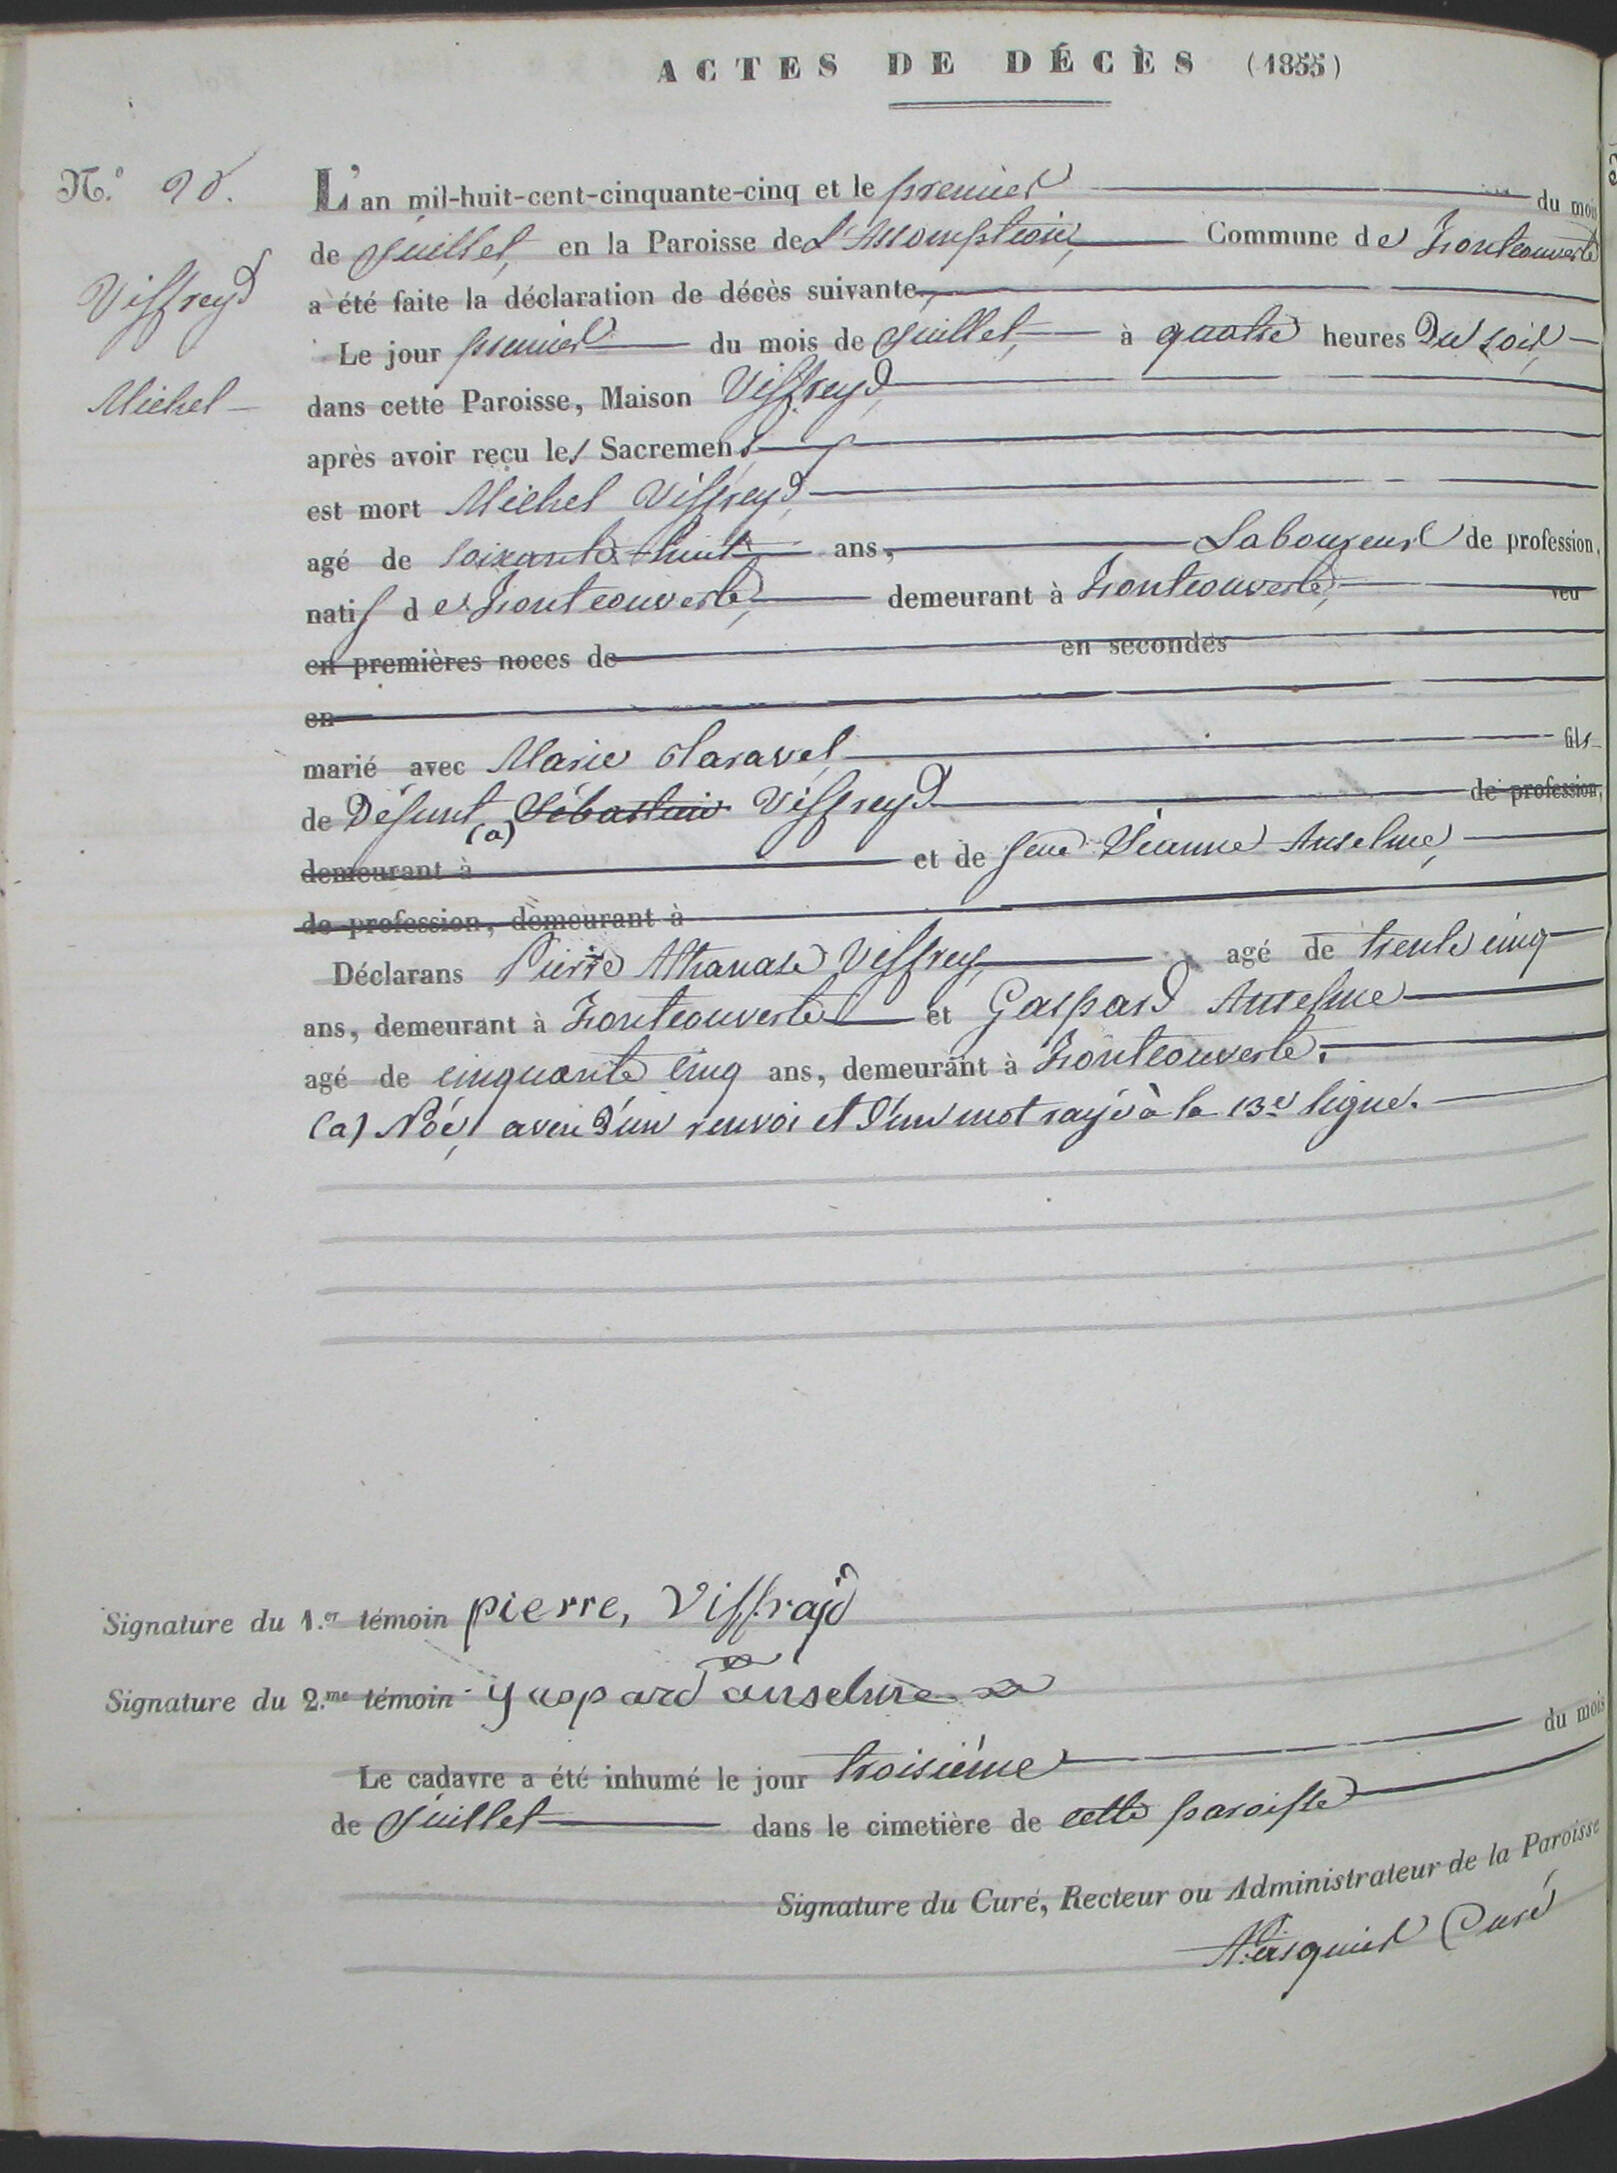 ACTES DE DÉCÈS (1855)
N.º 20.
L'an mil-huit-cent-cinquante-cinq et le premier du mois
de Juillet, en la Paroisse de L'Assomption, Commune de Fontcouverte
Viffreyd
a été faite la déclaration de décès suivante
Le jour premier du mois de Juillet, à quatre heures du soir
Michel
dans cette Paroisse, Maison Viffreyd,
après avoir reçu les Sacremens
est mort Michel Viffreyd,
agé de soixante huit ans, Laboureur de profession,
natif de Fontcouverte, demeurant à Fontcouverte, veu
en premières noces de en secondes
en
marié avec Marie Claravel, fils
de Défunt (a) Sébastien Viffreyd de profession,
demeurant à et de feue Jeanne Anselme,
de profession, demeurant à
Déclarans Pierre Athanase Viffrey agé de trente cinq
ans, demeurant à Fontcouverte et Gaspard Anselme
agé de cinquante cinq ans, demeurant à Fontcouverte.
(a) Noé, avec d'un renvoi et d'un mot rayé à la 13e ligne.
Signature du 1.er témoin pierre, Viffrajd
Signature du 2.me témoin gaspard anselme
Le cadavre a été inhumé le jour troisième du mois
de Juillet dans le cimetière de cette paroisse
Signature du Curé, Recteur ou Administrateur de la Paroisse
Curé